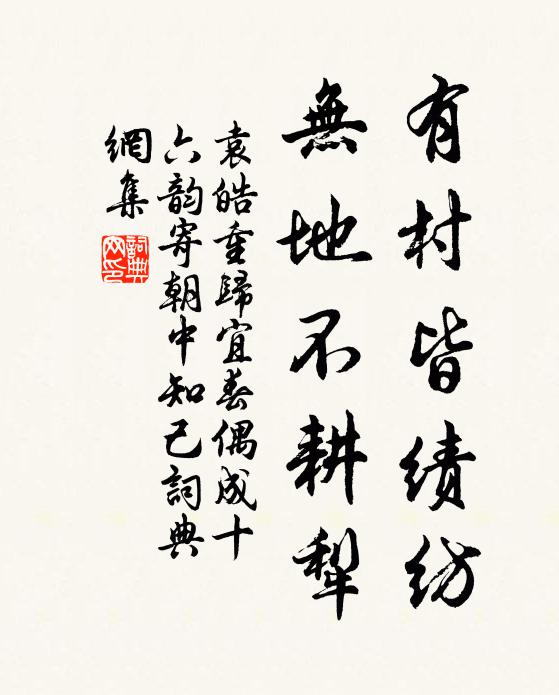 有村皆績紡
無地不耕犁
袁皓重歸宜春偶成十
六韵寄朝中知己詞典
網集
詞典網印